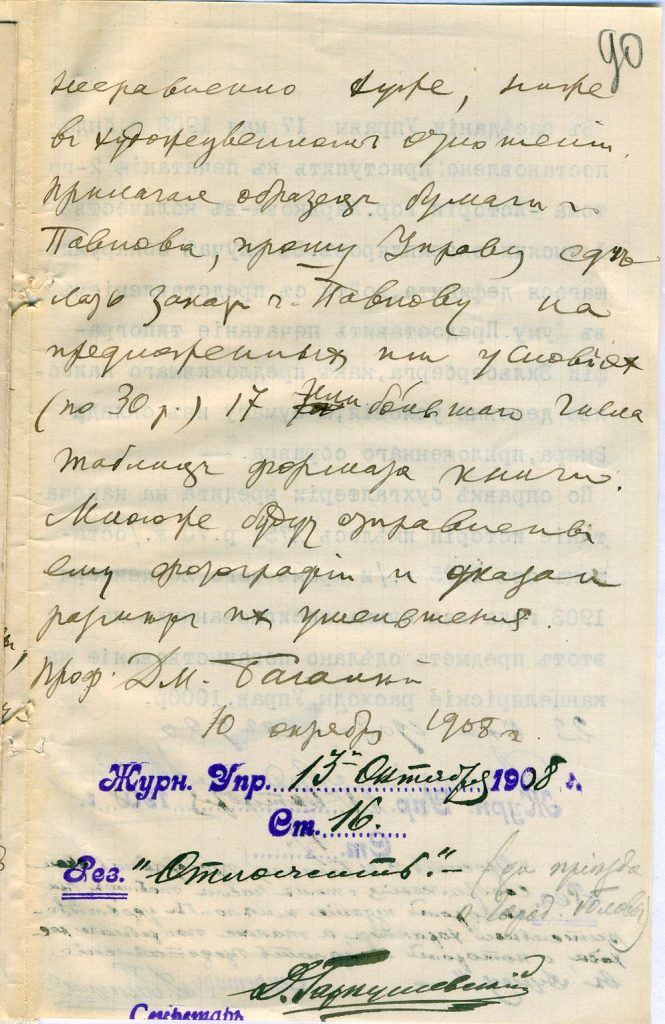 90
несравненно хуже, ниже
въ художественномъ отношеніи.
Прилагая образецъ бумаги г.
Павлова, прошу Управу сдѣ
лать заказъ г. Павлову на
предложенныхъ имъ условіях
(по 30 р.) 17 или большаго числа
таблицъ формата книги.
Мною же будут отправлены
ему фотографіи и указан
размѣръ их уменьшенія.
Проф. Дм. Багалѣй
10 октября 1908 г.
Журн. Упр. 13 Октября 1908 г.
Ст. 16.
Рез. "Отложить". – (до пріѣзда
г. Город. Головы)
Секретарь